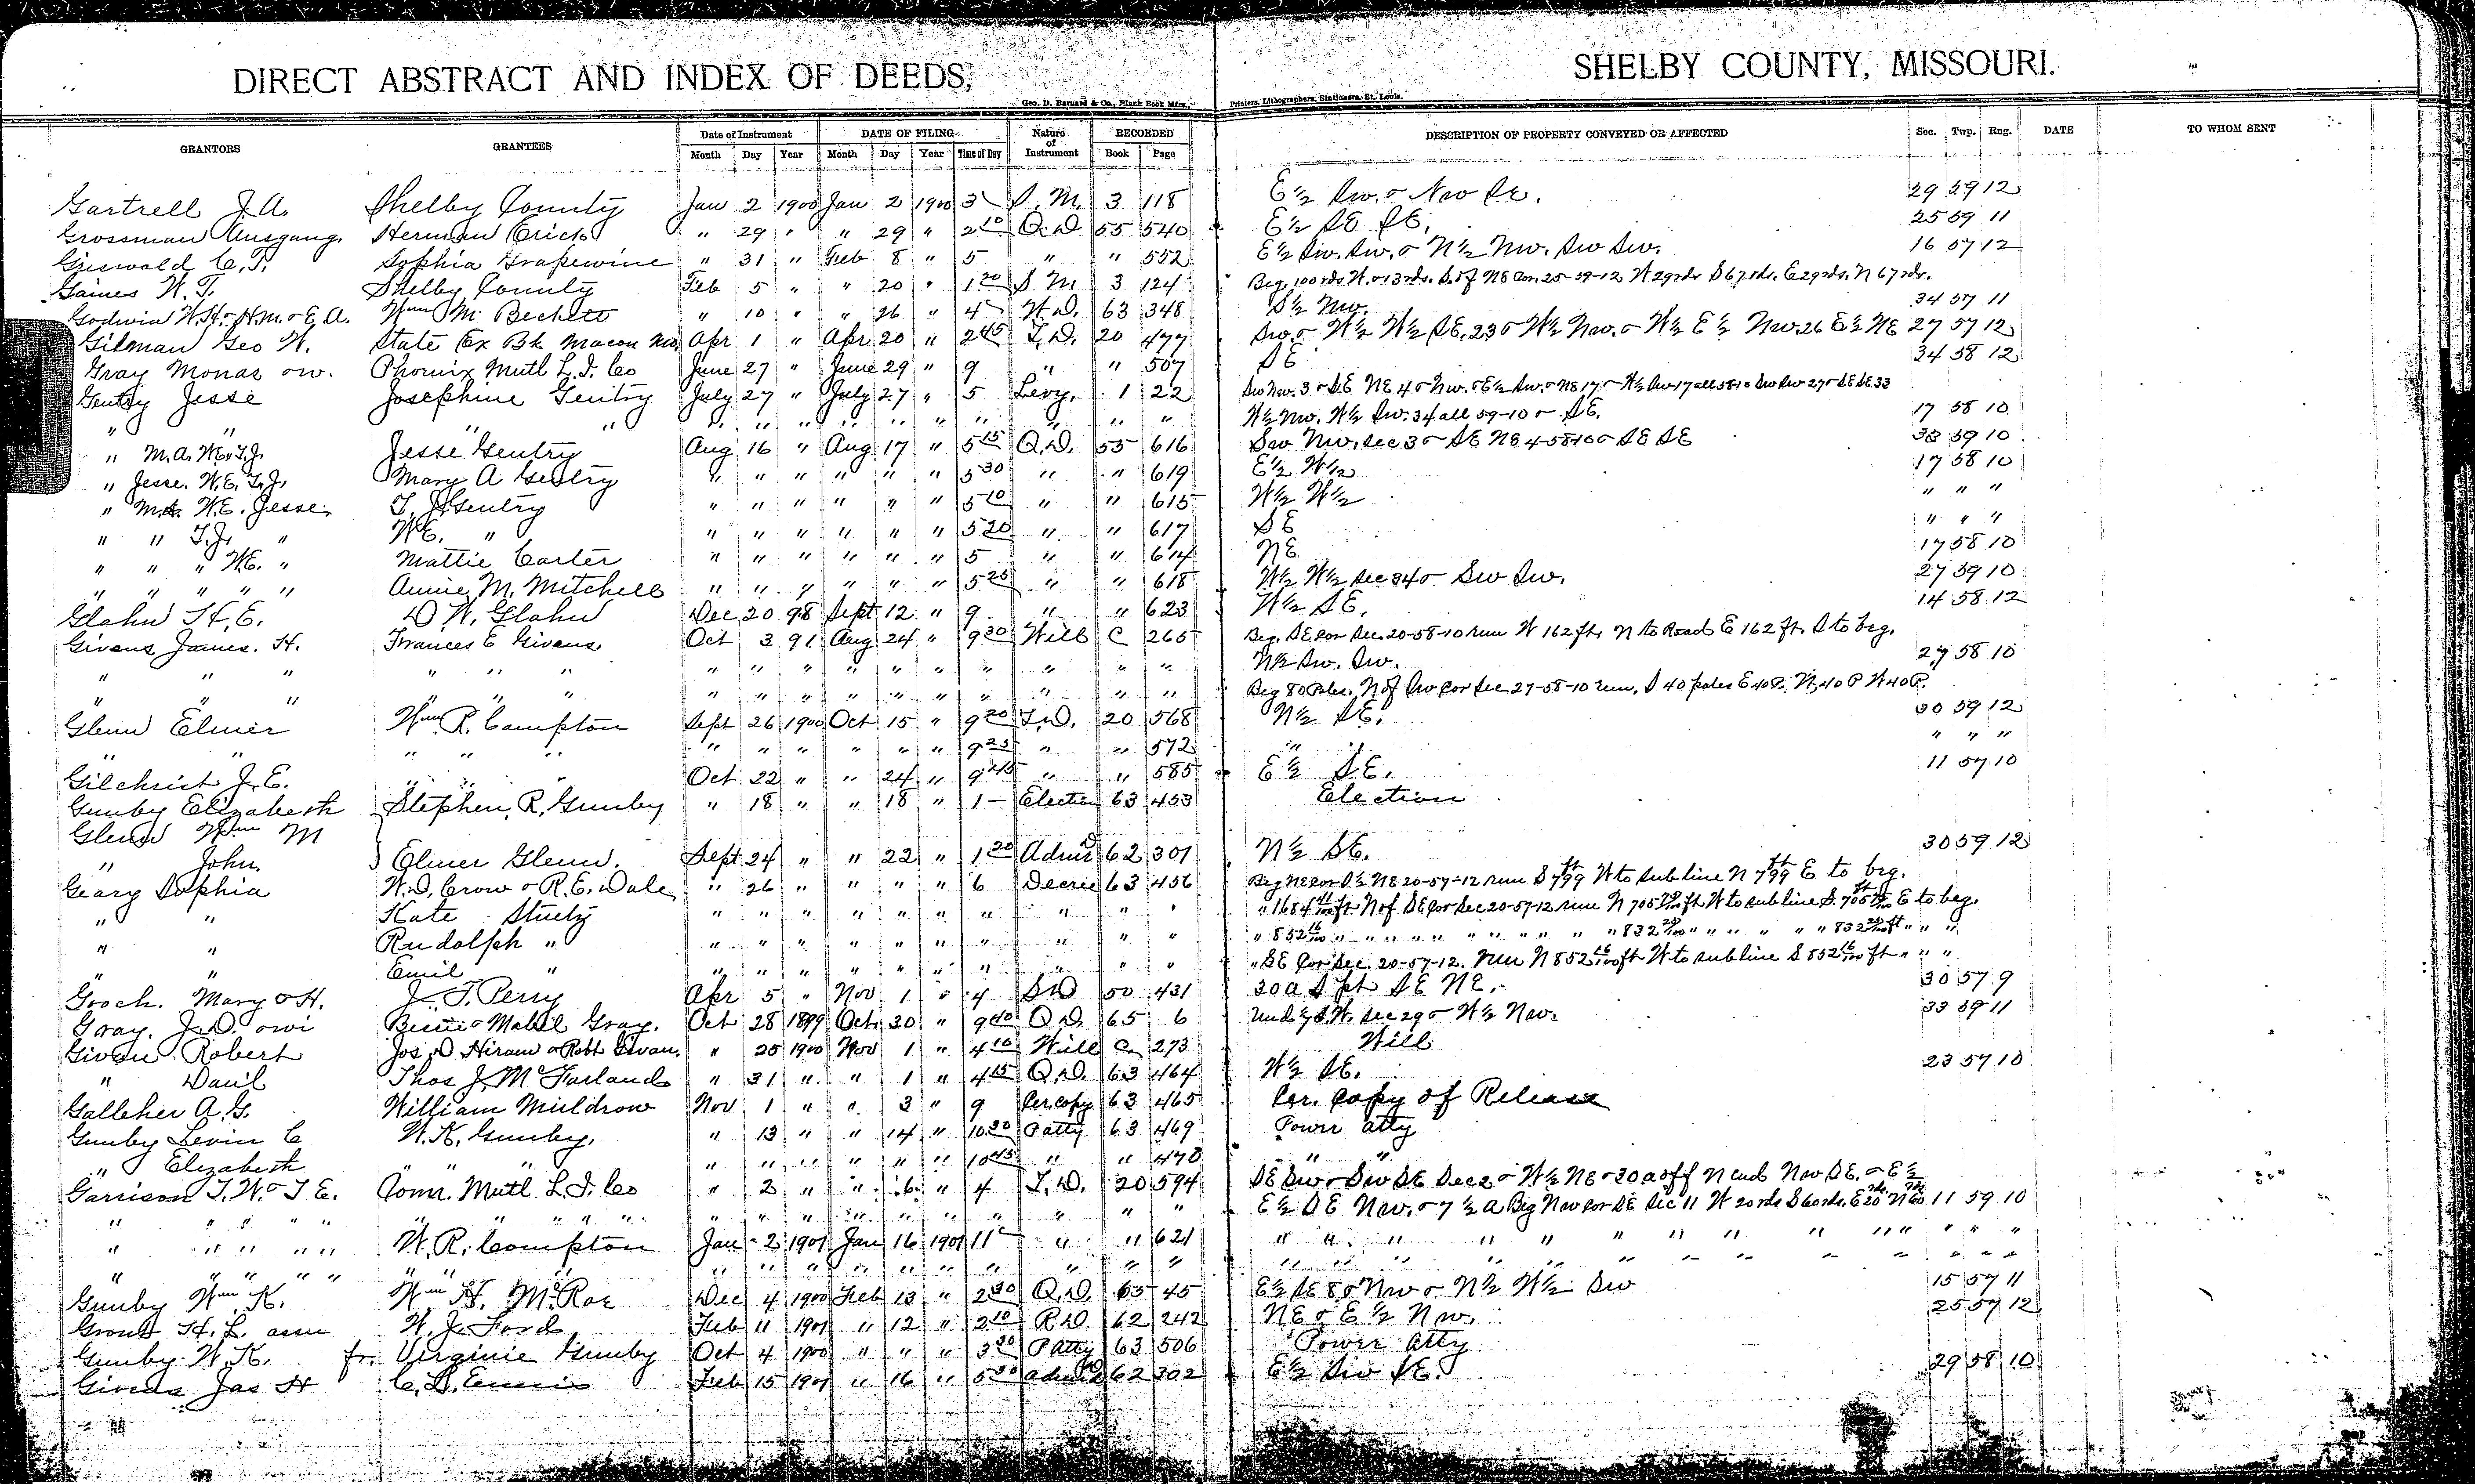 DIRECT ABSTRACT AND INDEX OF DEEDS, SHELBY COUNTY, MISSOURI.
Geo. D. Barnard & Co., Blank Book Mfrs., Printers, Lithographers, Stationers, St. Louis.
GRANTORS GRANTEES Date of Instrument DATE OF FILING Nature of Instrument RECORDED DESCRIPTION OF PROPERTY CONVEYED OR AFFECTED Sec. Twp. Rng. DATE TO WHOM SENT
Month Day Year Month Day Year Time of Day Book Page
Gartrell J.A. Shelby County Jan 2 1900 Jan 2 1900 3 S. M. 3 118 E½ Sw. & Nw Se. 29 59 12
Grossman Ausgang. Herman Erich " 29 " " 29 " 2 10 Q.D 55 540 E½ SE SE. 25 59 11
Griswald C.T. Sophia Grapewine " 31 " Feb 8 " 5 " " 552 E½ Sw. Sw. & N½ Nw. Sw Sw. 16 57 12
Gaines W. T. Shelby County Feb 5 " " 20 " 1 20 S M 3 124 Beg. 100 rds W. & 13 rds. S. of NE Cor. 25-59-12 W 29 rds S 67 rds. E 29 rds. N 67 rds.
Godwin W.H. & H.M. & E.A. Wm M. Beckett " 10 " " 26 " 4 W.D. 63 348 S½ Nw. 34 57 11
Gilman Geo W. State Ex Bk Macon Mo. Apr 1 " Apr 20 " 2 45 T.D. 20 477 Sw. & W½ W½ SE. 23 & W½ Nw. & W½ E½ Nw. 26 E½ NE 27 57 12
Gray Monas ow. Phoenix Mutl L.I. Co June 27 " June 29 " 9 " " 507 SE 34 58 12
Gentry Jesse Josephine Gentry July 27 " July 27 " 5 Levy. 1 22 Sw Nw. 3 & SE NE 4 & Nw. & E½ Sw. & NE 17 & W½ Sw 17 all 58-10 Sw Sw 27 & SE SE 33
" " " " " " " " " " " " " " W½ Nw. W½ Sw. 34 all 59-10 & SE. 17 58 10
" M.A. W.E. T.J. Jesse Gentry Aug 16 " Aug 17 " 5 15 Q.D. 55 616 Sw Nw. Sec 3 & SE NE 4-58-10 & SE SE 33 59 10
" Jesse. W.E. T.J. Mary A Gentry " " " " " " 5 30 " " 619 E½ W½ 17 58 10
" M.A. W.E. Jesse. T. J. Gentry " " " " " " 5 10 " " 615 W½ W½ " " "
" " T.J. " W.E. " " " " " " " 5 20 " " 617 SE " " "
" " " W.E. " Mattie Carter " " " " " " 5 " " 614 NE 17 58 10
" " " " " Annie M. Mitchell " " " " " " 5 25 " " 618 W½ W½ Sec 34 & Sw Sw. 27 59 10
Glahn H.E. D W. Glahn Dec 20 98 Sept 12 " 9 " " 623 W½ SE. 14 58 12
Givens James. H. Frances E Givens. Oct 3 91 Aug 24 " 9 30 Will C 265 Beg. SE Cor Sec. 20-58-10 run W 162 ft. N to Road E 162 ft. S to beg.
" " " " " " " " " " " " " " " " " N½ Sw. Sw. 27 58 10
" " " " " " " " " " " " " " " " " Beg 80 Poles. N of Sw Cor Sec 27-58-10 run, S 40 poles E 40 P. N. 40 P W 40 P.
Glenn Elmer Wm R. Compton Sept 26 1900 Oct 15 " 9 20 T.D. 20 568 N½ SE. 30 59 12
" " " " " " " " " " " 9 25 " " 572 " " " " "
Gilchrist J.E. " " " Oct 22 " " 24 " 9 45 " " 585 E½ SE. 11 57 10
Gunby Elizabeth Stephen. R. Gunby " 18 " " 18 " 1 — Election 63 453 Election
Glenn Wm M
" John. } Elmer Glenn. Sept 24 " " 22 " 1 20 Adms D 62 301 N½ SE. 30 59 12
Geary Sophia W.D. Crow & R.E. Dale " 26 " " " " 6 Decree 63 456 Beg NE Cor S½ NE 20-57-12 run S 799 ft W to sub line N 799 ft E to beg.
" " Kate Stuetz " " " " " " " " " " " 1684 ft N of SE Cor Sec 20-57-12 run N 705 ft W to sub line S. 705 ft E to beg.
" " Rudolph " " " " " " " " " " " " 852 16/100 " " " " " " " " " " 832 " " " " " " 832 ft " " "
" " Emil " " " " " " " " " " " " SE Cor Sec. 20-57-12. run N 852 16/100 ft W to sub line S 852 16/100 ft " " "
Gooch. Mary & H. J. T. Perry Apr 5 " Nov 1 " 4 SWD 50 431 30 a S pt SE NE. 30 57 9
Gray. J.D. owi Bessie & Mabel Gray. Oct 28 1899 Oct. 30 " 9 40 Q.D. 65 6 Und S.W. Sec 29 & W½ Nw. 33 59 11
Givan Robert Jos. D Hiram & Robt Givan. " 25 1900 Nov 1 " 4 10 Will C. 273 Will
" Danl Thos J. McFarland " 31 " " 1 " 4 15 Q.D. 63 464 W½ SE. 23 57 10
Galleher A.G. William Muldrow Nov 1 " " 3 " 9 Cer. copy 63 465 Cer. Copy of Release
Gunby Levin C W. K. Gunby. " 13 " " 14 " 10 30 P atty 63 469 Power atty
" Elizabeth " " " " " " " " " 10 45 " " 470 " "
Garrison T.W. & T E. Conn. Mutl. L.I. Co " 2 " " 6 " 4 T.D. 20 594 SE Sw & Sw SE Sec 2 & W½ NE & 30 a off N end Nw SE. & E½
" " " " " " " " " " " " " " " " " " " E½ SE Nw. & 7½ a Beg Nw Cor SE Sec 11 W 20 rds S 60 rds. E 20 rds. N 60 rds 11 59 10
" " " " " W. R. Compton Jan 2 1901 Jan 16 1901 11 " " 621 " " " " " " " " " " " " " "
" " " " " " " " " " " " " " " " " " " " " " " " " " " "
Gunby Wm. K. Wm H. McRae Dec 4 1900 Feb 13 " 2 30 Q.D. 65 45 E½ SE 8 & Nw & N½ W½ Sw 15 57 11
Grout H. L. assee W. J. Ford Feb 11 1901 " 12 " 2 10 R D 62 242 NE & E½ Nw. 25 57 12
Gunby. W. K. fr. Virginie Gunby Oct 4 1900 " " " 3 20 P atty 63 506 Power atty
Givens Jas H C. D. Ennis Feb 15 1901 " 16 " 5 30 Adms D 62 302 E½ Sw SE. 29 58 10